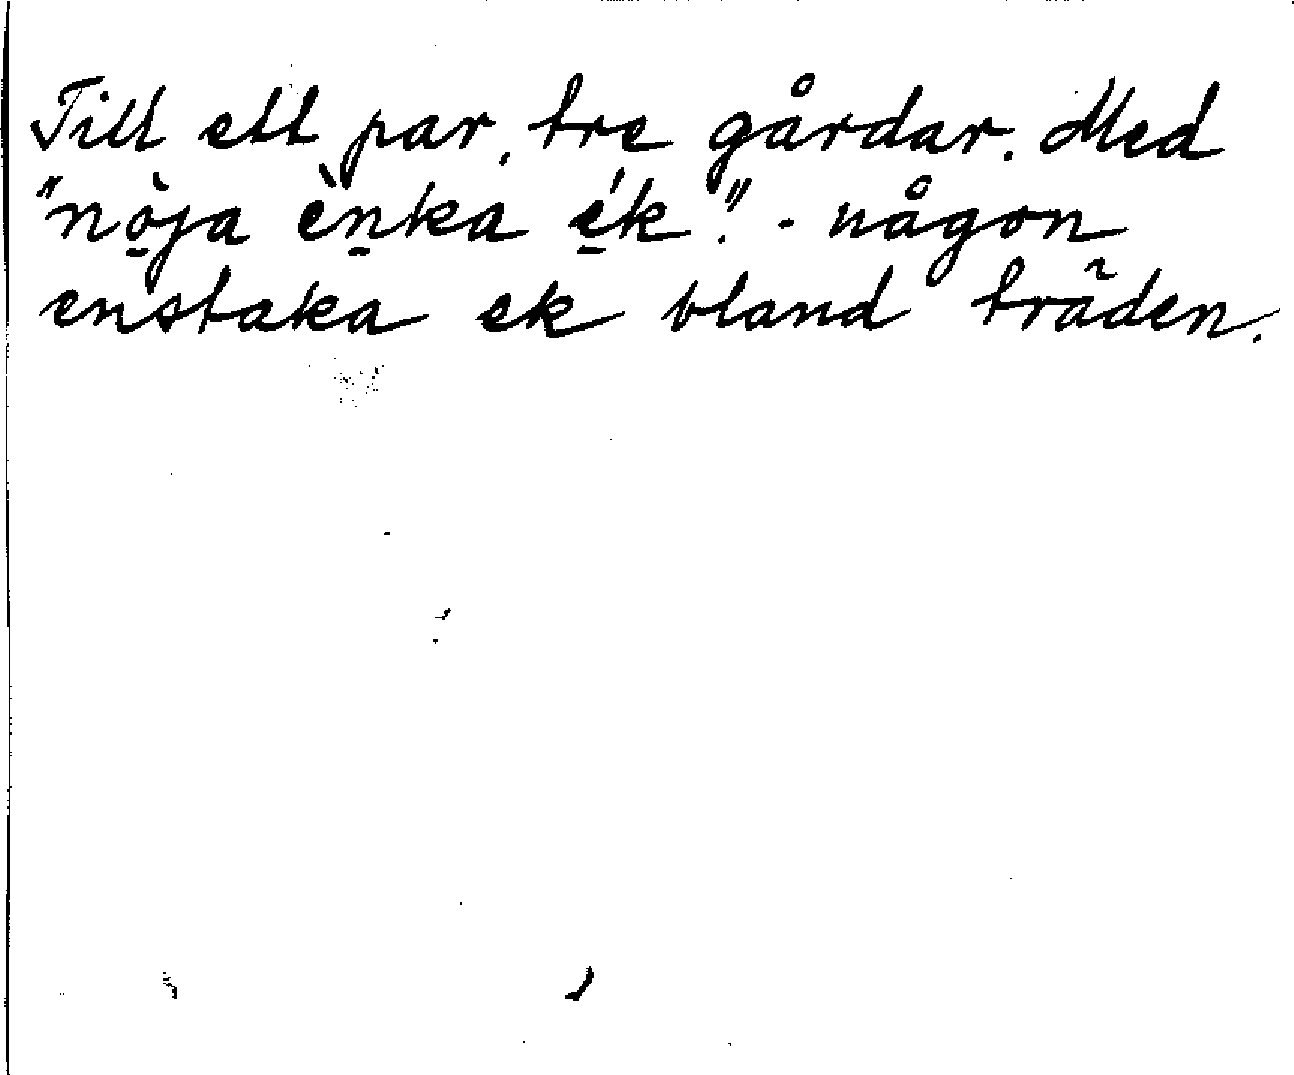 Till ett par, tre gårdar. Med
"nò̱ja èṉka é̱k". - någon
enstaka ek bland träden.